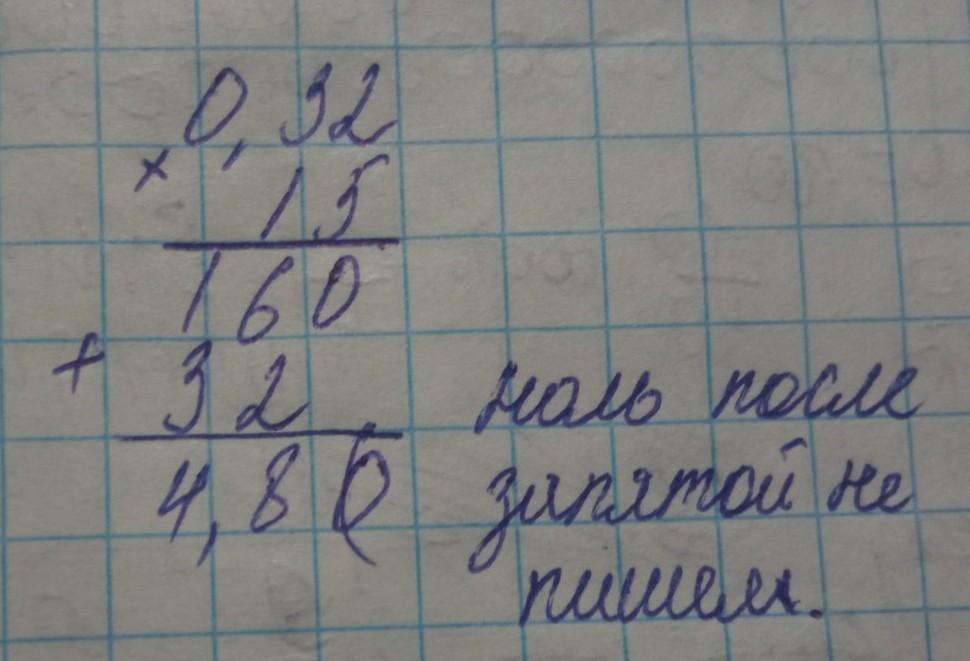 0,32
× 15
160
+ 32
4,80
ноль после
запятой не
пишем.